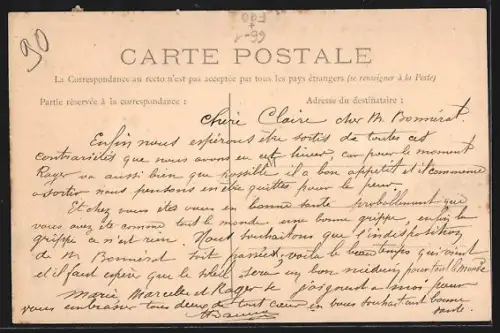 90
CARTE POSTALE
La Correspondance au recto n'est pas acceptée par tous les pays étrangers (se renseigner à la Poste)
Partie réservée à la correspondance : Adresse du destinataire :
Chère Claire cher M. Bonnérat
Enfin nous espérons être sortis de toutes ces
contrariétés que nous avons eu cet hiver, car pour le moment
Roger va aussi bien que possible il a bon appétit et il commence
a sortir nous pensons en être quittes pour la peur.
Et chez vous êtes vous en bonne santé probablement que
vous avez été comme tout le monde une bonne grippe, enfin la
grippe ce n'est rien. Nous souhaitons que l'indisposition
de M. Bonnérat soit passée, voila le beau temps qui vient
et il faut espérer que le soleil sera un bon médecin pour tout le monde
Marie Marcelle et Roger se joignent a moi pour
vous embrasser tous deux de tout cœur en vous souhaitant bonne
santé.